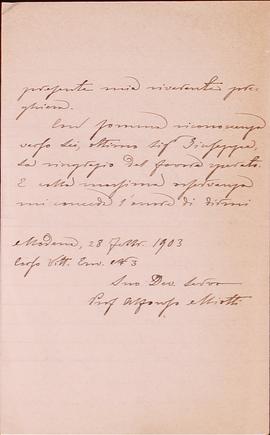 presente mia riverente pre-
ghiera.
Con somma riconoscenza
verso Lei, ottimo Sig. Giuseppe,
La ringrazio del favore sperato.
E colla massima osservanza
mi conceda l'onore di dirmi
Modena, 28 Febbr. 1903
Corso Vitt. Em. N 3
Suo Dev. Servo
Prof Alfonso Miotti